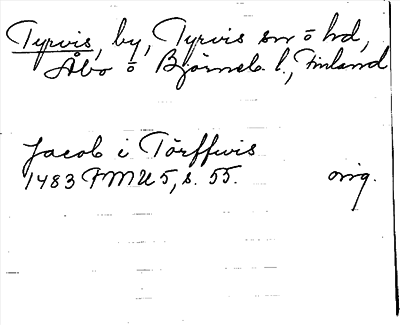 Tyrvis, by, Tyrvis sn o hd,
Åbo o Björneb. l., Finland
Jacob i Törffwis
1483 FMU 5, s. 55. orig.